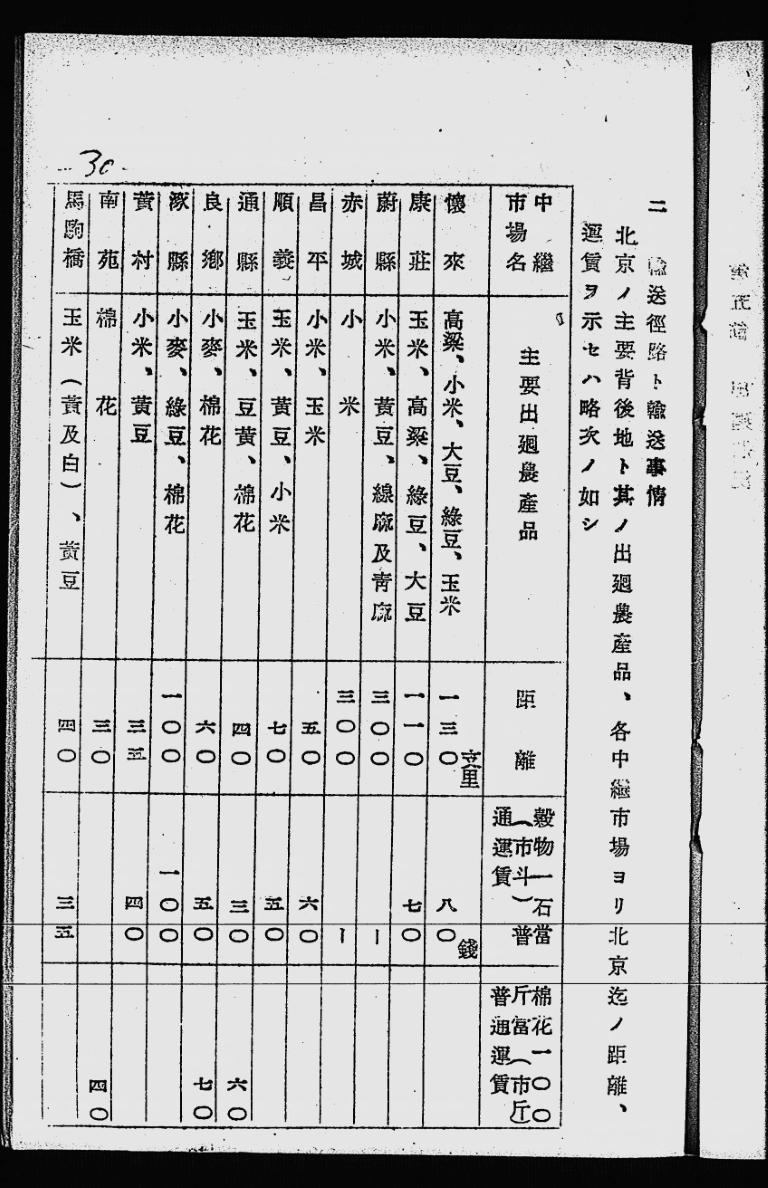 二 輸送徑路ト輸送事情
北京ノ主要背後地ト其ノ出廻農產品、各中繼市場ヨリ北京迄ノ距離、
運賃ヲ示セハ略次ノ如シ
中繼市場名 主要出廻農產品 距離 穀物一石當(市斗)普通運賃 棉花一〇〇斤當(市斤)普通運賃
懷來 高粱、小米、大豆、綠豆、玉米 一三〇支里 八〇錢
康莊 玉米、高粱、綠豆、大豆 一一〇 七〇
蔚縣 小米、黃豆、線麻及靑麻 三〇〇 ー
赤城 小米 三〇〇 ー
昌平 小米、玉米 五〇 六〇
順義 玉米、黃豆、小米 七〇 五〇
通縣 玉米、豆黃、棉花 四〇 三〇 六〇
良鄕 小麥、棉花 六〇 五〇 七〇
涿縣 小麥、綠豆、棉花 一〇〇 一〇〇
黃村 小米、黃豆 三五 四〇
南苑 棉花 三〇 四〇
馬駒橋 玉米(黃及白)、黃豆 四〇 三五
30